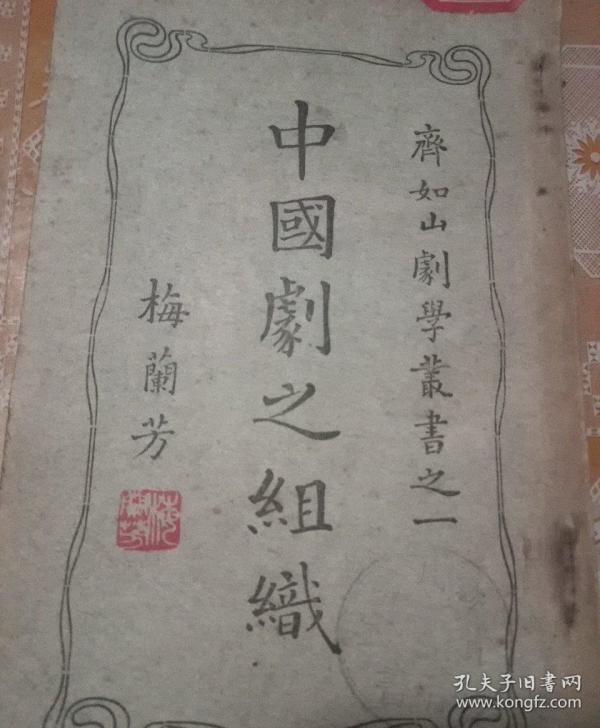 齊如山劇學叢書之一
中國劇之組織
梅蘭芳
孔夫子旧書网
www.kongfz.com